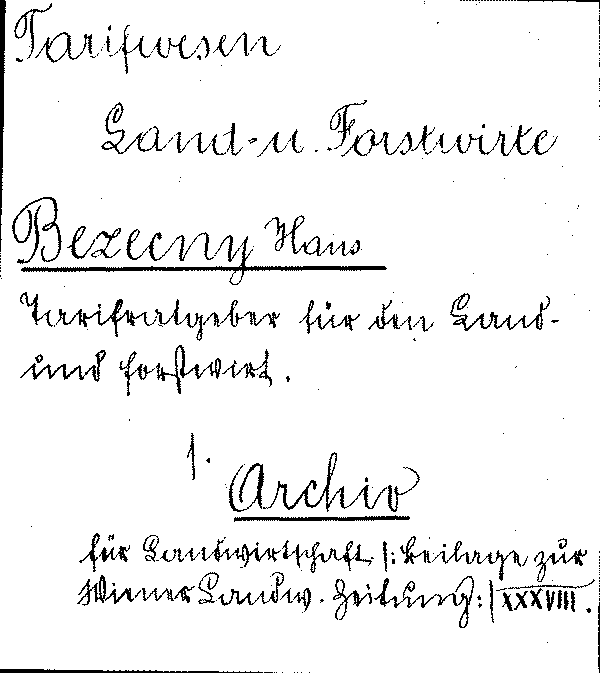 Tarifwesen
Land- u. Forstwirte
Bezecny Hans
Tarifratgeber für den Land-
und Forstwirt.
s.
Archiv
für Landwirtschaft /: Beilage zur
Wiener Landw. Zeitung :/ XXXVIII.